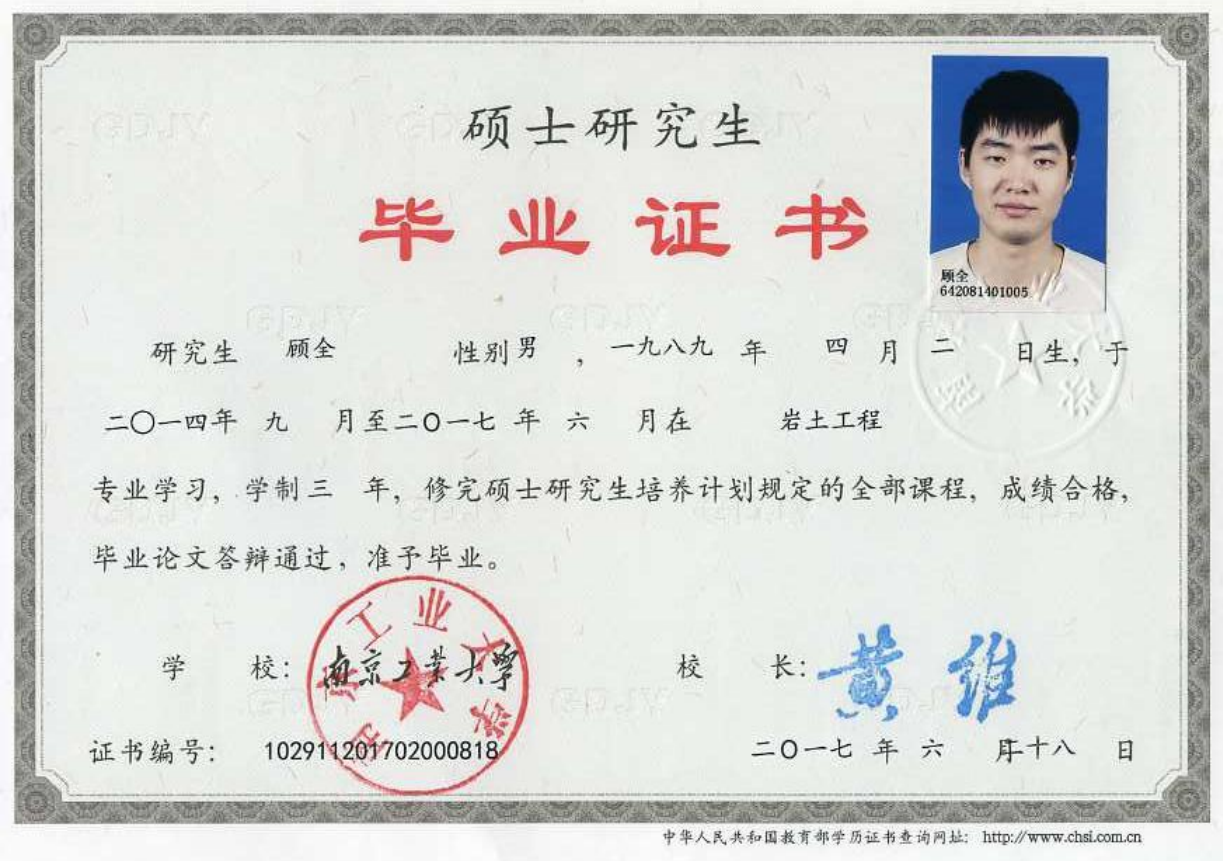 硕士研究生
毕业证书
顾全
642081401005
研究生 顾全 性别 男 ，一九八九 年 四 月 二 日生，于
二〇一四年 九 月至二〇一七 年 六 月在 岩土工程
专业学习，学制三 年，修完硕士研究生培养计划规定的全部课程，成绩合格，
毕业论文答辩通过，准予毕业。
学 校：南京工业大学
南京工业大学
校 长：黄维
证书编号：102911201702000818
二〇一七 年 六 月 十八 日
中华人民共和国教育部学历证书查询网址：http://www.chsi.com.cn